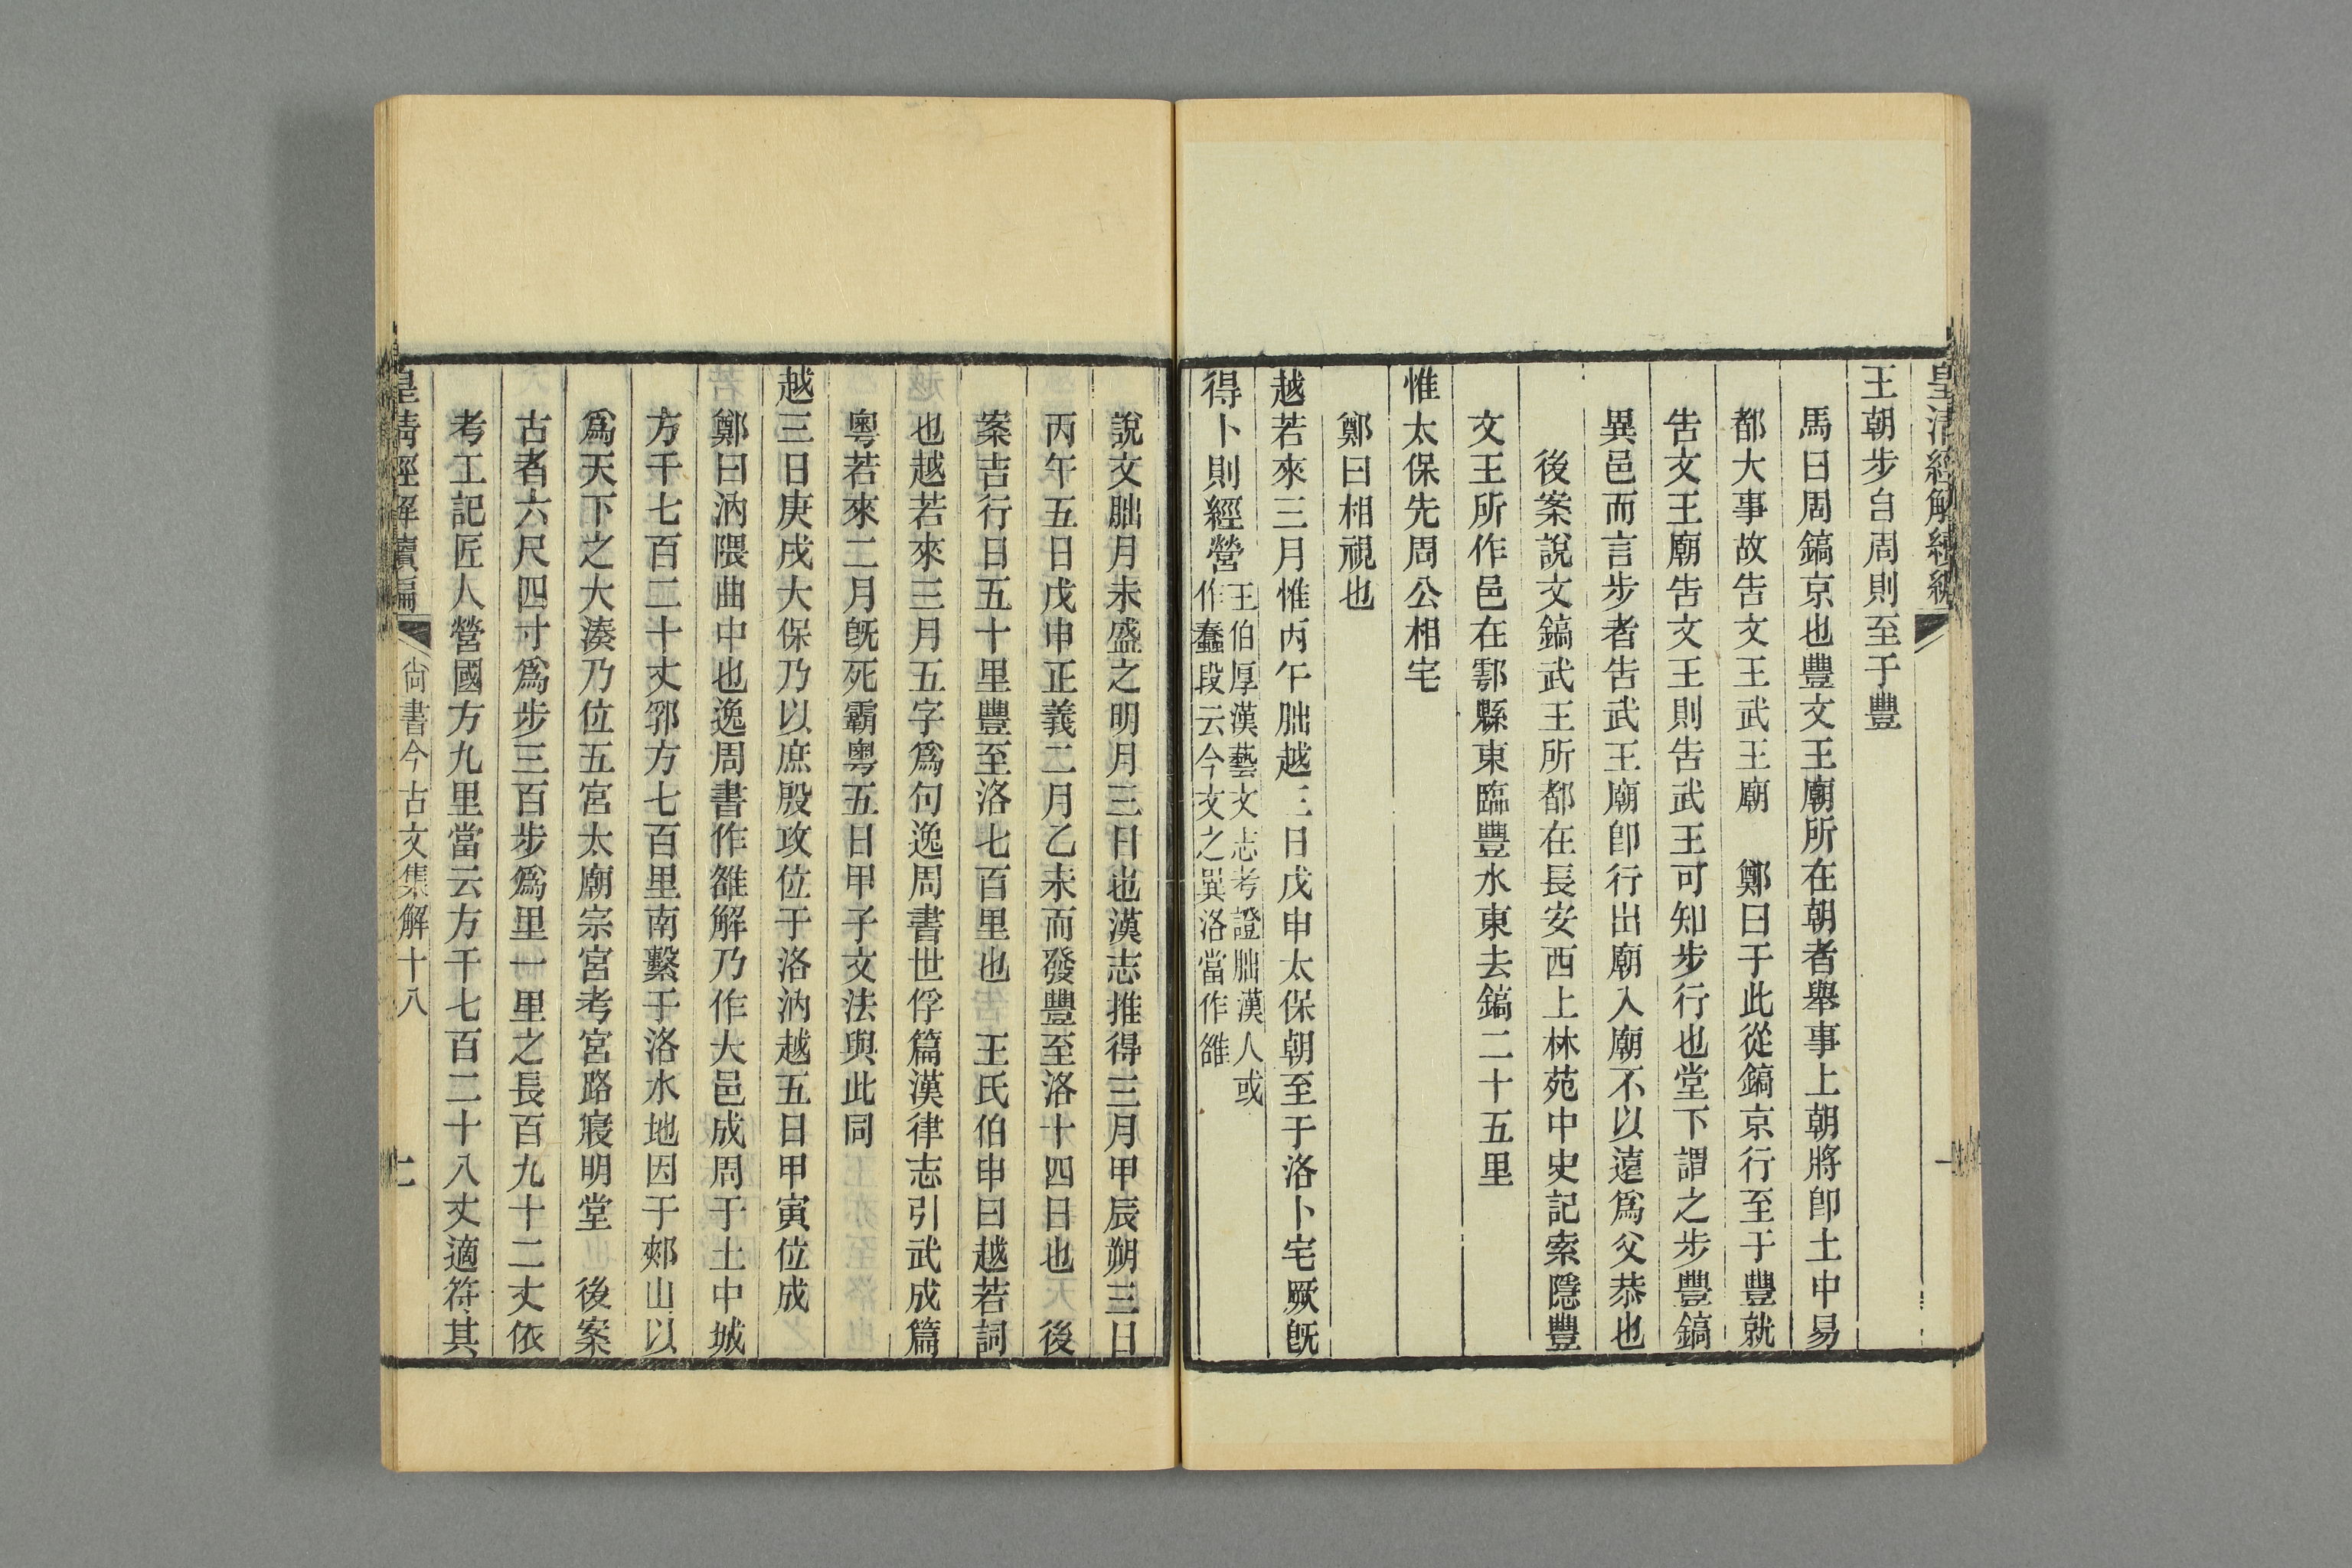 皇清經解續編
一
王朝步自周則至于豐
馬曰周鎬京也豐文王廟所在朝者舉事上朝將卽土中易
都大事故告文王武王廟　鄭曰于此從鎬京行至于豐就
告文王廟告文王則告武王可知步行也堂下謂之步豐鎬
異邑而言步者告武王廟卽行出廟入廟不以遠爲父恭也
後案說文鎬武王所都在長安西上林苑中史記索隱豐
文王所作邑在鄠縣東臨豐水東去鎬二十五里
惟太保先周公相宅
鄭曰相視也
越若來三月惟丙午朏越三日戊申太保朝至于洛卜宅厥旣
得卜則經營王伯厚漢藝文志考證朏漢人或
作蠢段云今文之異洛當作雒
說文朏月未盛之明月三日也漢志推得三月甲辰朔三日
丙午五日戊申正義二月乙未而發豐至洛十四日也　後
案吉行日五十里豐至洛七百里也　王氏伯申曰越若詞
也越若來三月五字爲句逸周書世俘篇漢律志引武成篇
粵若來二月旣死霸粵五日甲子文法與此同
越三日庚戌大保乃以庶殷攻位于洛汭越五日甲寅位成
鄭曰汭隈曲中也逸周書作雒解乃作大邑成周于土中城
方千七百二十丈郛方七百里南繫于洛水地因于郟山以
爲天下之大湊乃位五宮太廟宗宮考宮路寢明堂　後案
古者六尺四寸爲步三百步爲里一里之長百九十二丈依
考工記匠人營國方九里當云方千七百二十八丈適符其
皇清經解續編
尙書今古文集解十八
二